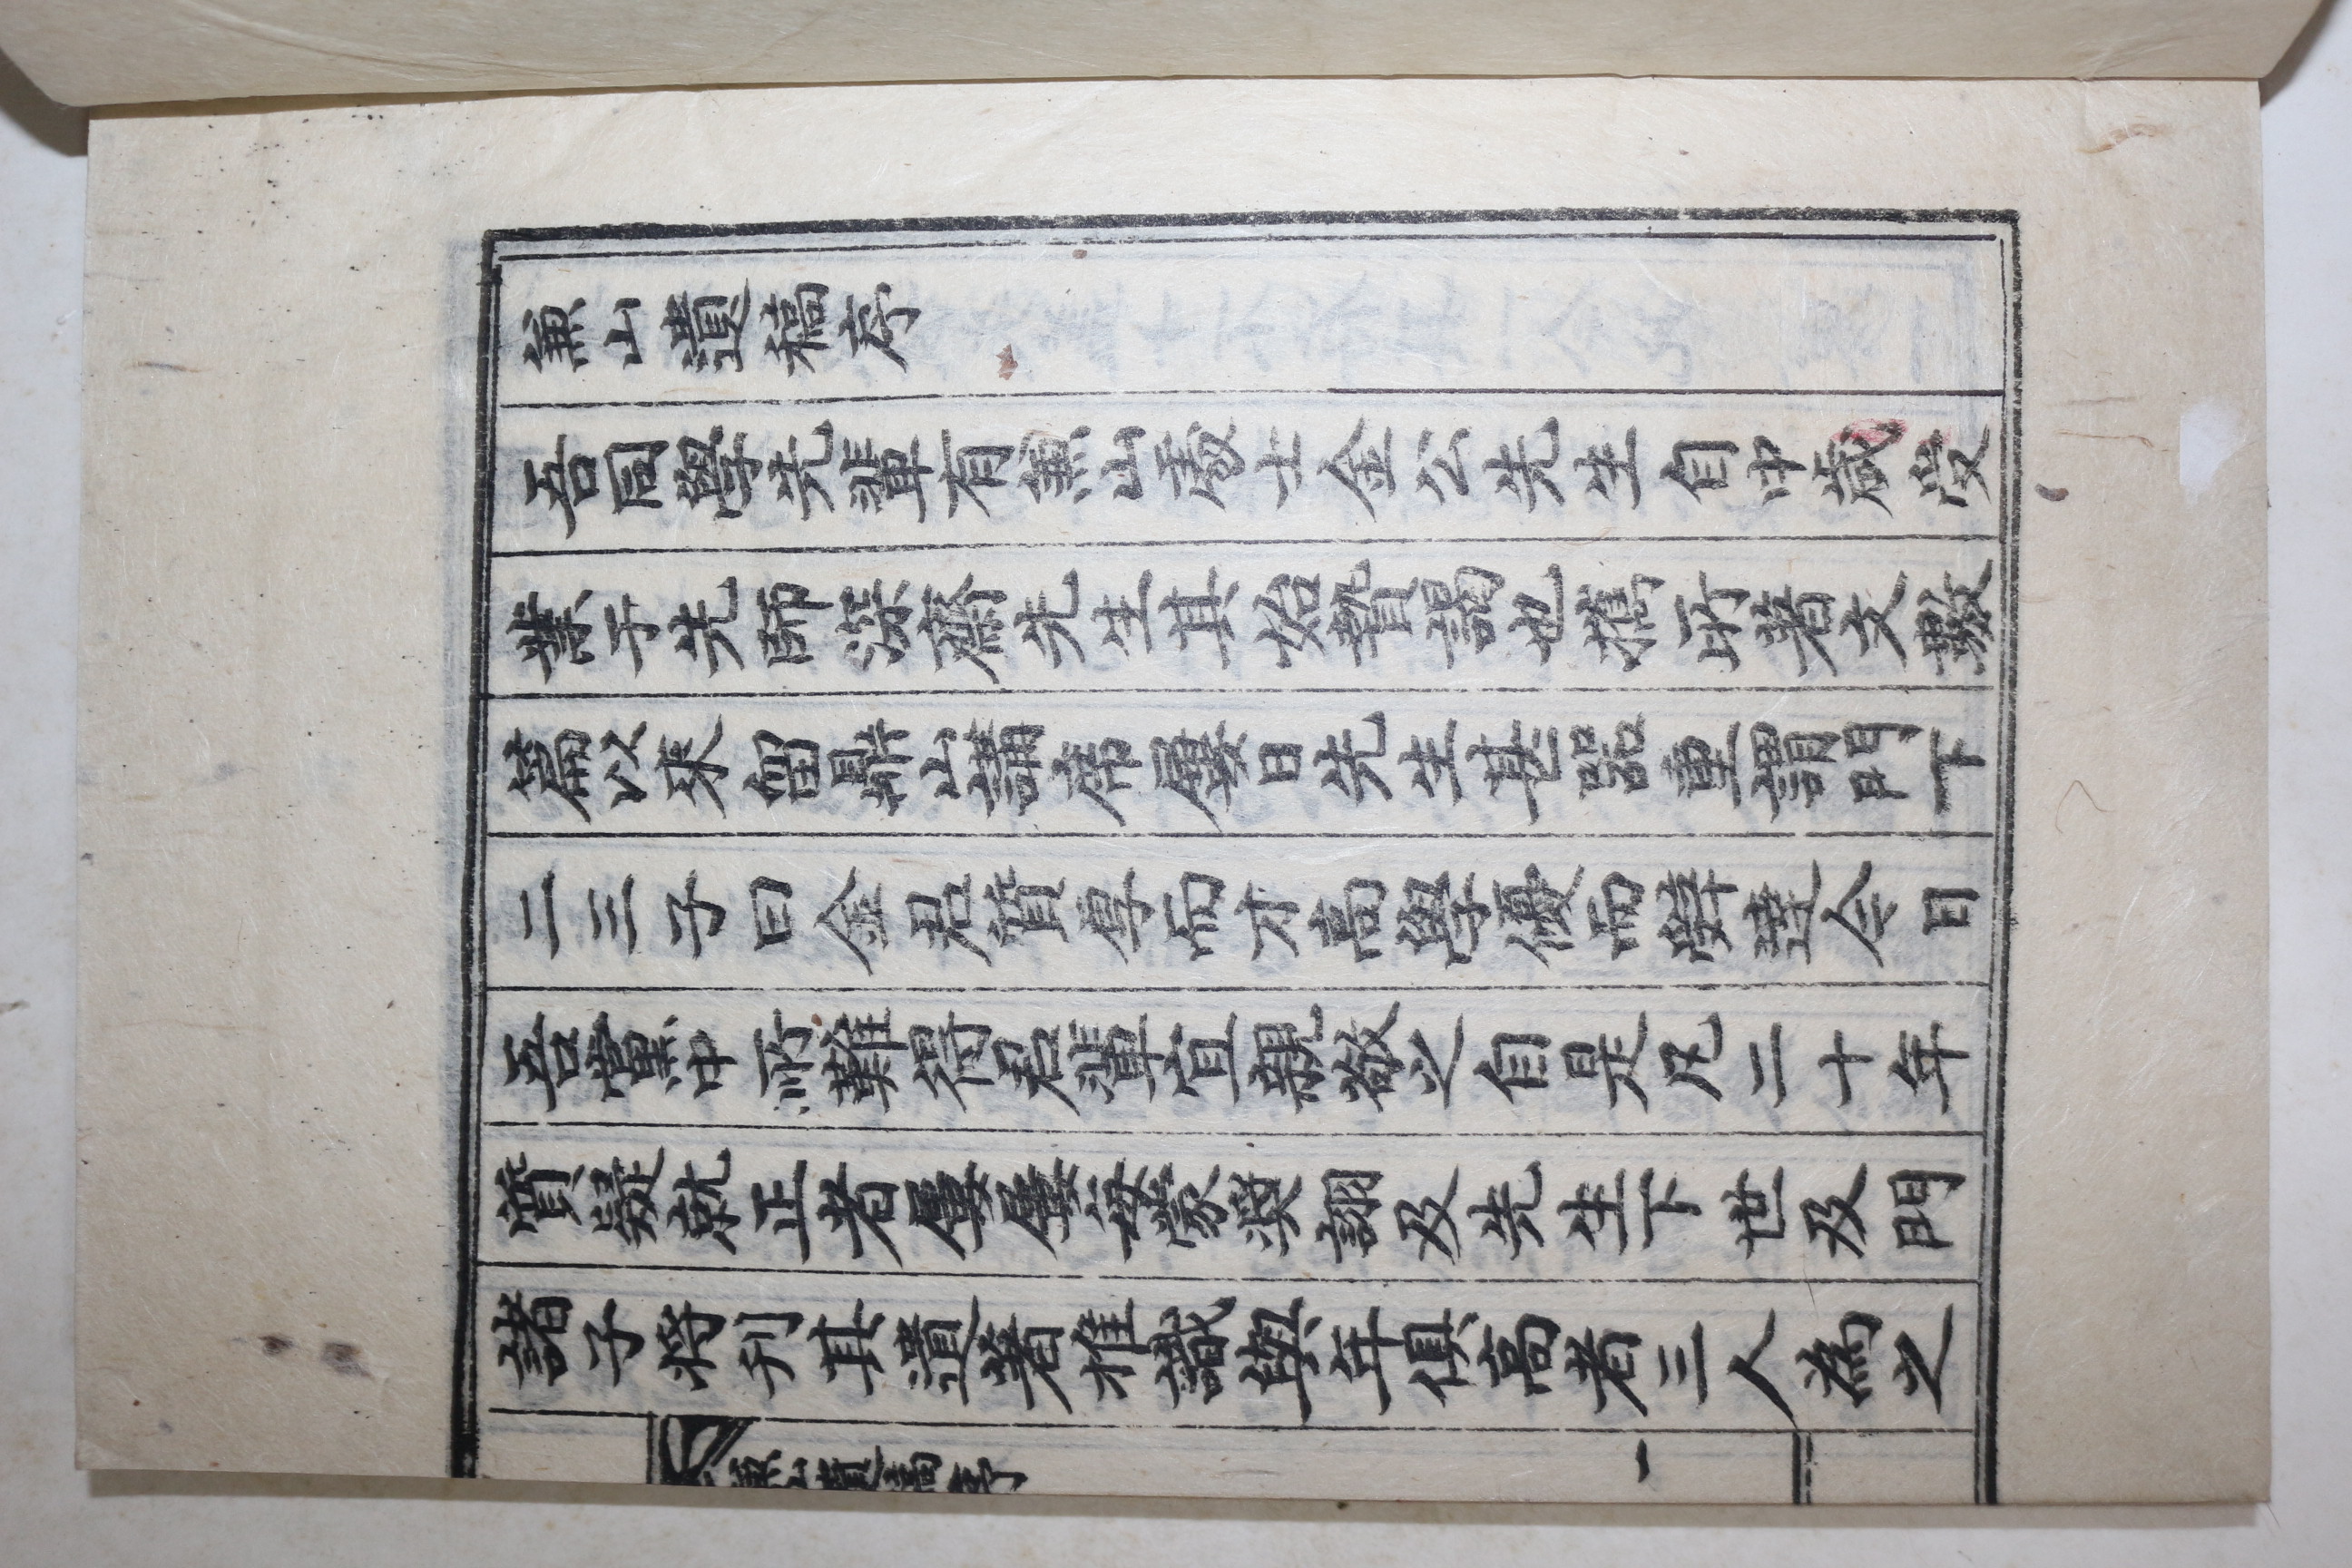 兼山遺稿序
吾同學先輩有兼山處士金公先生自中歲受
業于先師深齋先生其始贄謁也擕所著文數
篇以來留鼎山講席屢日先生甚器重謂門下
二三子曰金君質厚而才高學優而辭達今日
吾黨中所難得君輩宜親敬之自是凡二十年
質疑就正者屢屢每蒙奬詡及先生下世及門
諸子將刊其遺著推識與年俱高者三人為之
兼山遺稿序
一